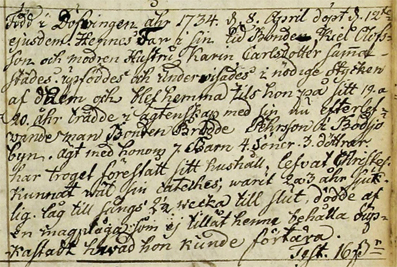 Född i Dösbingen åhr 1734. d. 8. April döpt d. 12te
ejusdem. Hennes Far i sin tid Bonden Axel Olofs-
son och modren Hustru Karin Carlsdotter samma-
stådes. upföddes och underwisades i nödige stycken
af dem och blef hemma tils hon på sitt 19. a
20. åhr trädde i ägtenskap med sin nu efterlef-
vande man Bonden Brodde Pehrsson i Bodsjö-
byn. ägt med honom 7 Barn 4. Söner. 3. döttrar.
har troget förestått sitt hushåll. Lefvat Christel.
kunnat wäl sin cateches, warit 2 a 3 åhr siuk-
lig. låg till sängs 2 1/2 wecka till slut. dödde af
en magplåga som ej tillät henne behålla
hwad hon kunde förtära.
Test. 16